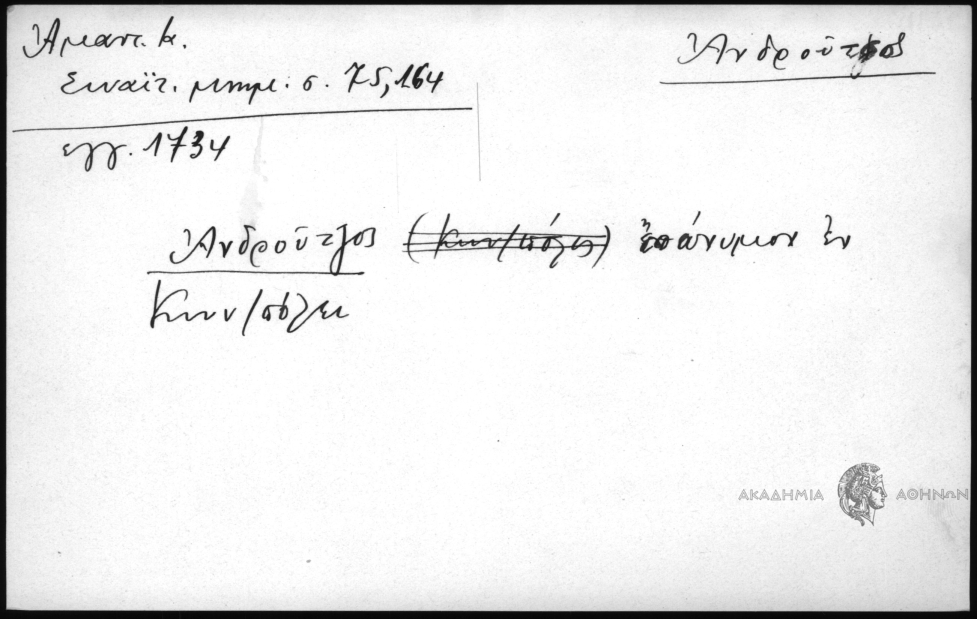 Ἀμαντ. Κ.
Σιναϊτ. μνημ. σ. 75, 164
Ἀνδροῦτσος
εγγ. 1734
Ἀνδροῦτζος (Κων/πόλεως) ἐπώνυμον ἐν
Κων/πόλει
ΑΚΑΔΗΜΙΑ ΑΘΗΝΩΝ